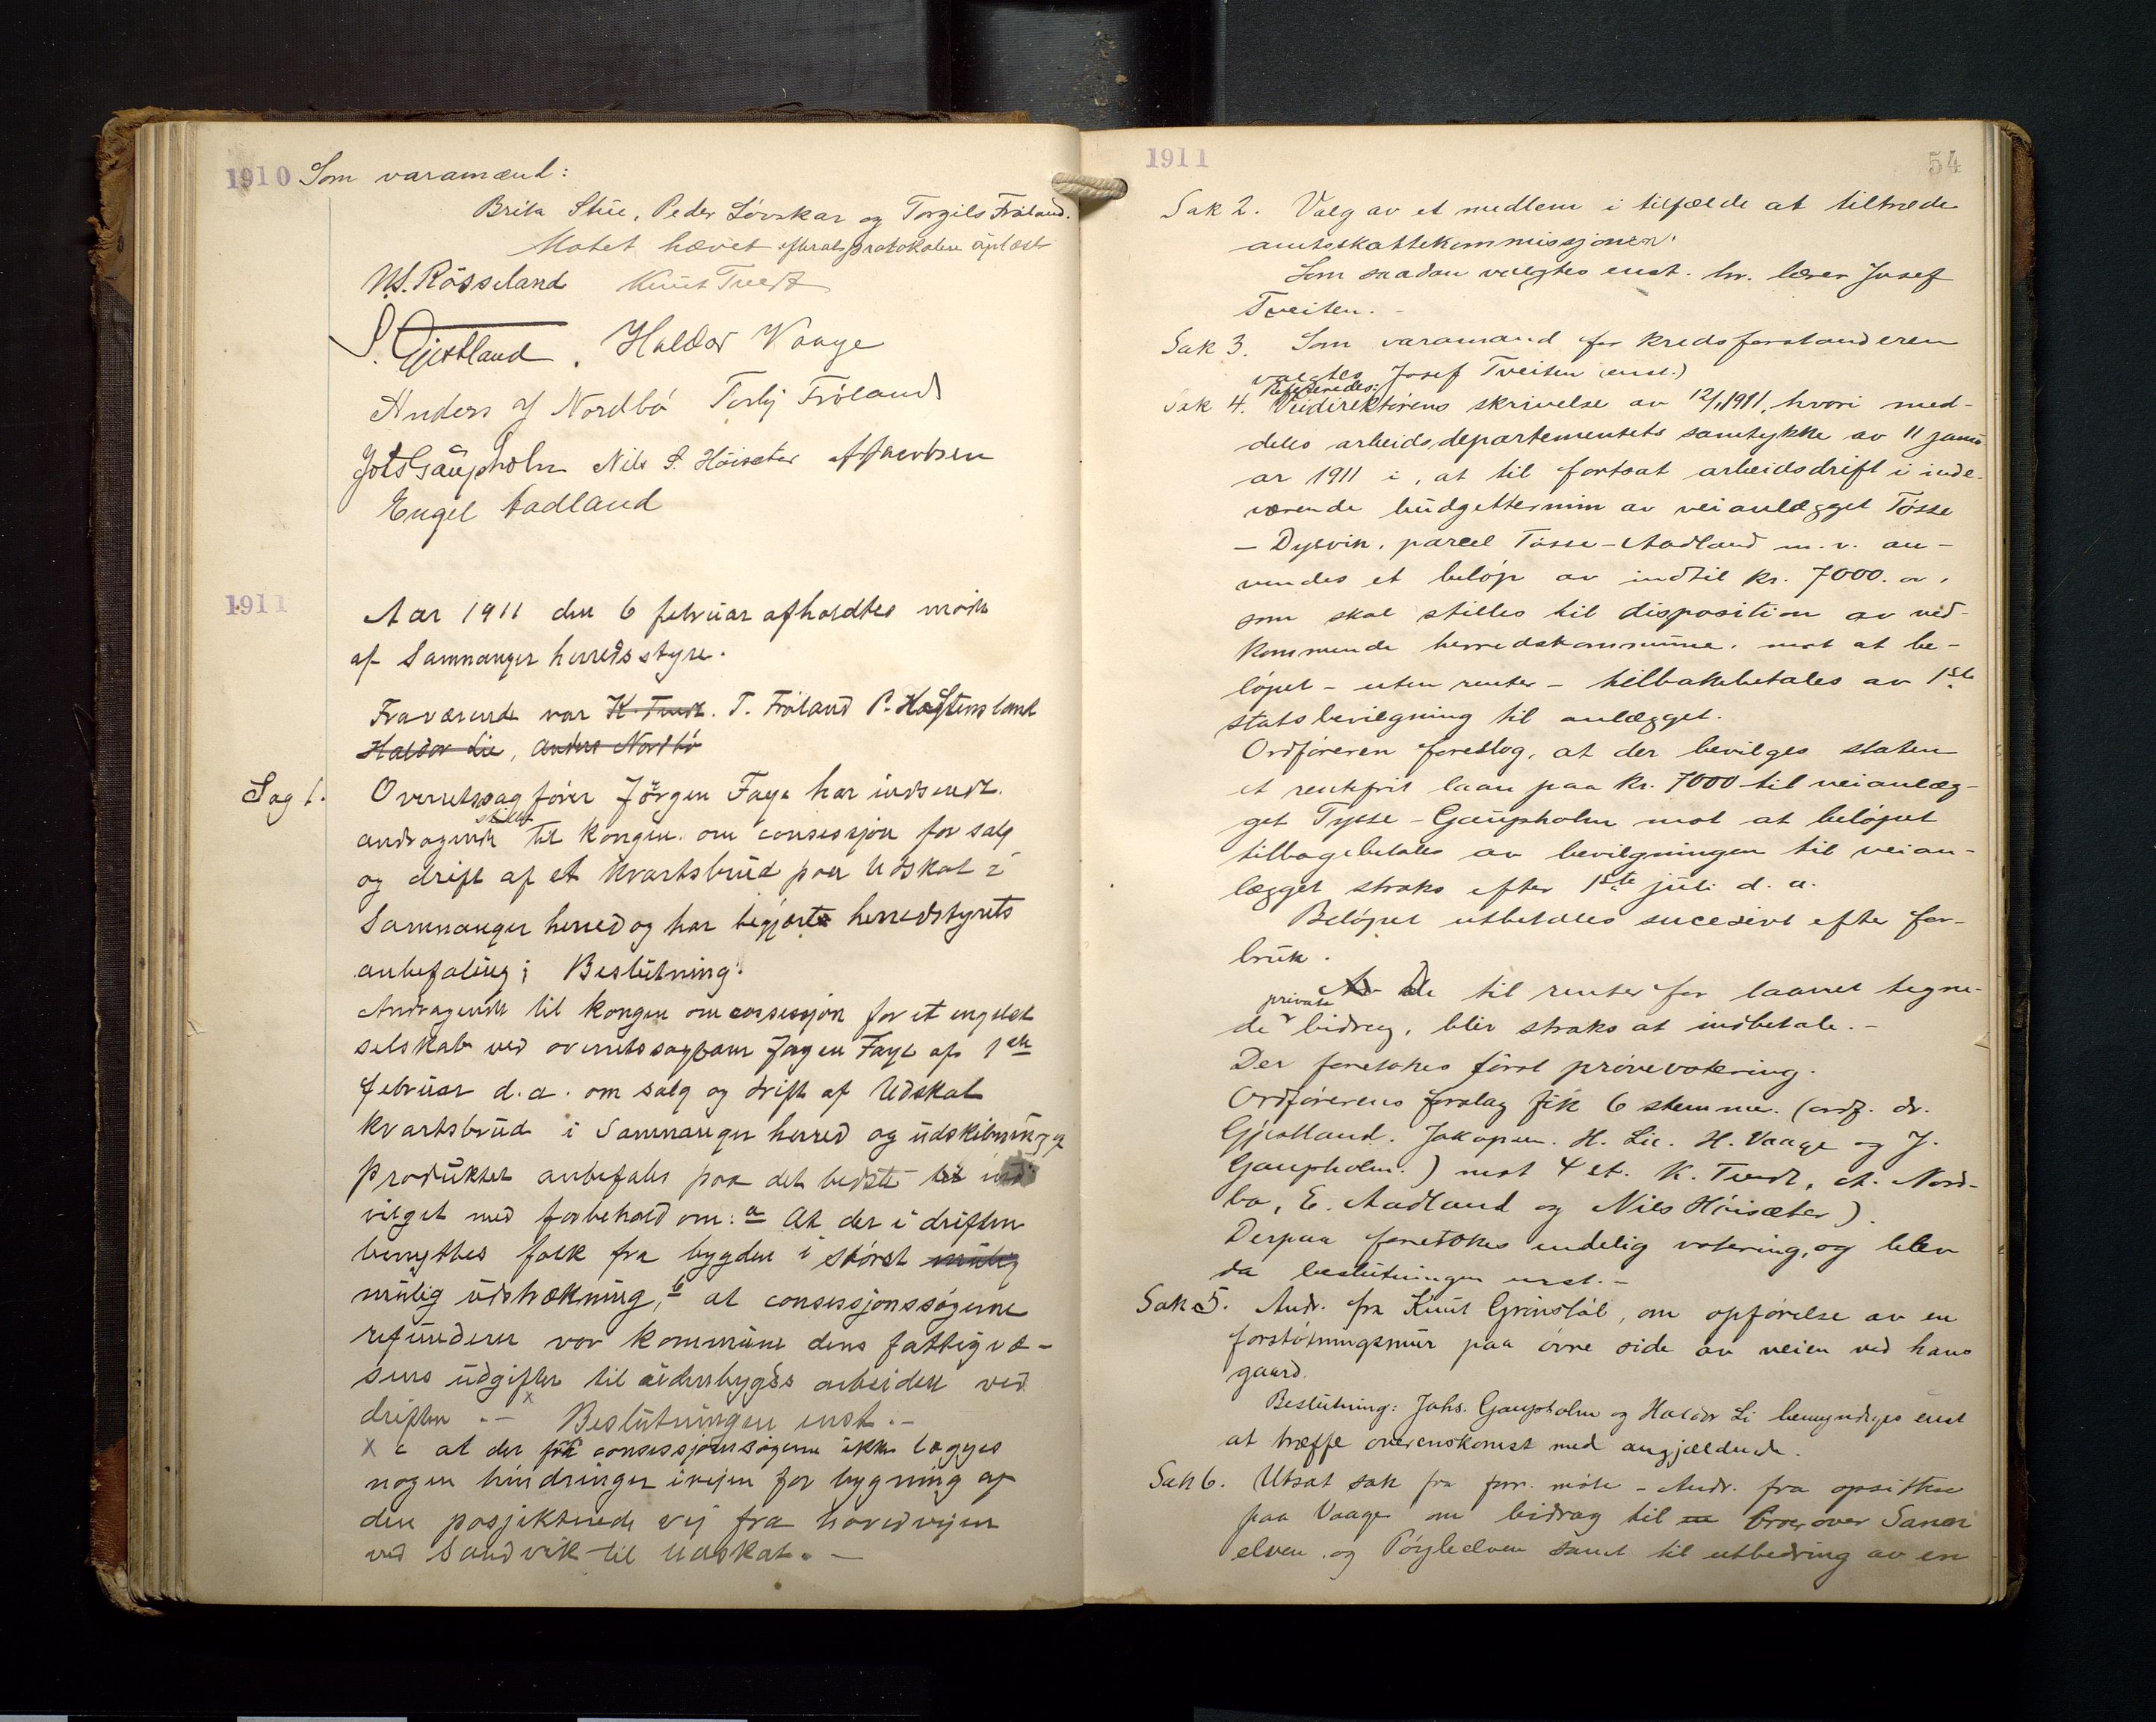 1910 Som varamænd:
Brita Stüe, Peder Lövskar og Torgils Fröland.
Møtet hævet efterat protokolen oplæst
N.S. Rösseland Knut Tvedt
S. Gjestland. Haldor Vaage
Anders J Nordbö Torbj Fröland
Johs Gaupholm Nils S. Höisæter A Jacobsen
Engel Aadland
1911
Aar 1911 den 6 februar afholdtes möde
af Samnanger herredsstyre.
Fraværende var K. Tvedt. T. Fröland P. Hagstensland
Haldor Lie, Anders Nordbö
Sag 1. Overretssagförer Jörgen Faye har indsendt
stilet
andragende til kongen om consessjon for salg
og drift af et kvartsbrud paa Udskot i
Samnanger herred og har begjært herredstyrets
anbefaling; Beslutning:
Andragende til kongen om consessjon for et engelsk
selskab ved overretssagfører Jørgen Faye af 1ste
februar d.a. om salg og drift af Udskot
kvartsbrud i Samnanger herred og udskibning af
produktet anbefales paa det bedste til ind
vilget med forbehold om: a At der i driften
benyttes folk fra bygden i störst mulig
mulig udstrækning, b at consessjonssögerne
refunderer vor kommune dens fattigvæ-
sens udgifter til udenbygds arbeidere ved
driften .- x Beslutningen enst.-
x c at der fra consessjonssögerne ikke lægges
nogen hindringer iveien for bygning af
den prosjekterede vej fra hovedveien
ved Sandvik til Udskot. -
1911
54
Sak 2. Valg av et medlem i tilfælde at tiltræde
amtsskattekommissjonen.
Som saadan valgtes enst. hr. lærer Josef
Tveiten. -
Sak 3. Som varamand for kredsforstanderen
valgtes Josef Tveiten (enst.)
Refereredes:
Sak 4. Veidirektörens skrivelse av 12/1 1911, hvori med-
deles arbeidsdepartementets samtykke av 11 janu
ar 1911 i, at til fortsat arbeidsdrift i inde-
værende budgettermin av veianlægget Tösse
- Dysvik, parcel Tösse - Aadland m.v. an-
vendes et belöp av indtil kr. 7000.00,
som skal stilles til disposition av ved-
kommende herredskommune, mot at be-
löpet - uten renter - tilbakebetales av 1ste
statsbevilgning til anlægget.
Ordföreren foreslog, at der bevilges staten
et rentefrit laan paa kr. 7000 til veianlæg-
get Tysse - Gaupholm mot at belöpet
tilbagebetales av bevilgningen til veian-
lægget straks efter 1ste juli d. a.
Belöpet utbetales sucesivt efter for-
bruk.
De til renter for laanet tegne-
private
de bidrag, blir straks at indbetale. -
Der foretokes först prövevotering.
Ordförerens forslag fik 6 stemmer. (ordf. dr.
Gjestland. Jakopsen. H. Lie. H. Vaage og J.
Gaupholm.) mot 4 st. K. Tvedt, A. Nord-
bo, E. Aadland og Nils Höisæter).
Derpaa foretokes endelig votering, og blev
da beslutningen enst. -
Sak 5. Andr. fra Knut Grönsdal, om opförelse av en
forstötningsmur paa övre side av veien ved hans
gaard.
Beslutning: Johs. Gaupholm og Haldor Li bemyndiges enst
at træffe overenskomst med angjældende.
Sak 6. Utsat sak fra forr. möte - Andr. fra opsittere
paa Vaage om bidrag til broer over Sanen
elven og Pöyleelven samt til utbedring av en